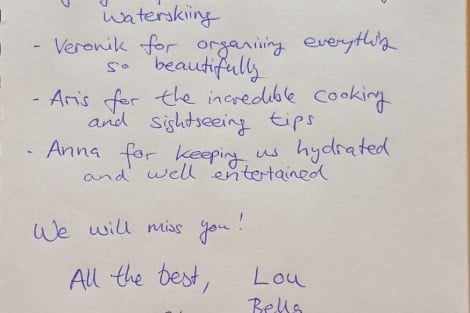 waterskiing
- Veronik for organising everything
so beautifully
- Aris for the incredible cooking
and sightseeing tips
- Anna for keeping us hydrated
and well entertained
We will miss you!
All the best, Lou
Bella